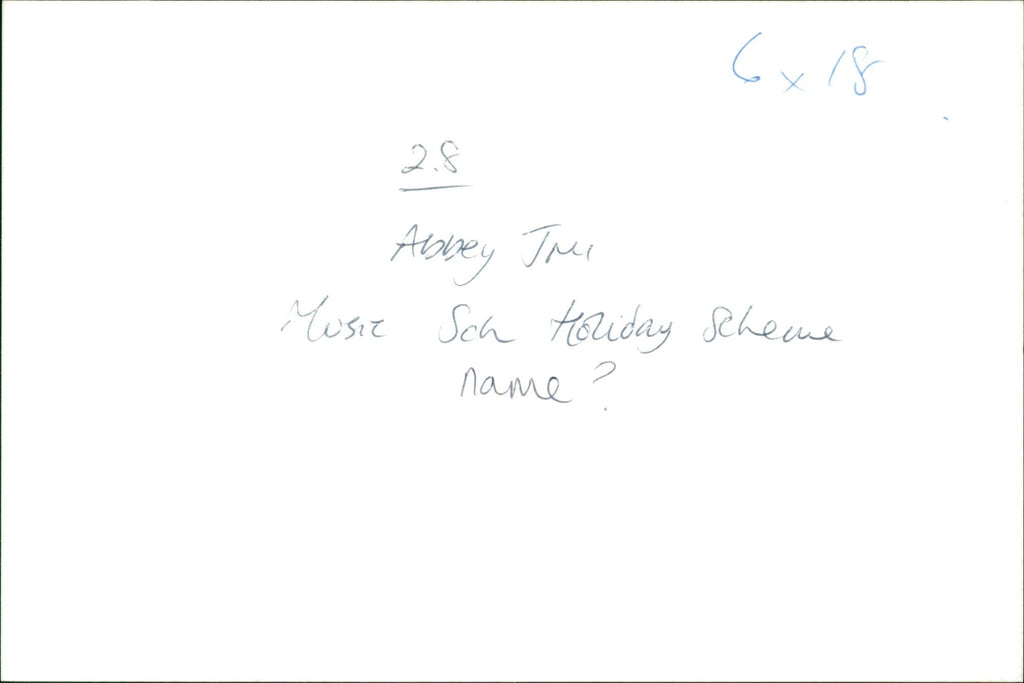 6 x 18
2.8
Abbey
Music Sch Holiday Scheme
name?